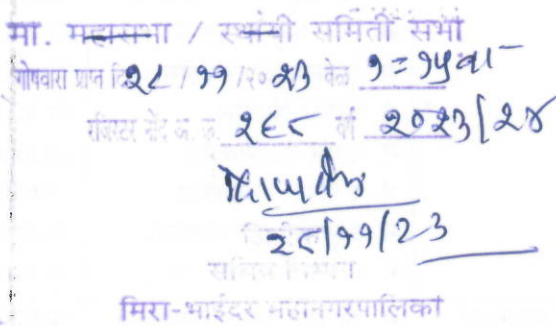 मा. महासभा / स्थायी समिती सभा
गोषवारा प्राप्त दि २८ / ११ /२० २३ वेळ १=१५ वा
रजिस्टर नोंद अ. क्र. २६८ वर्ष २०२३/२४
२८/११/२3
मिरा-भाईंदर महानगरपालिका